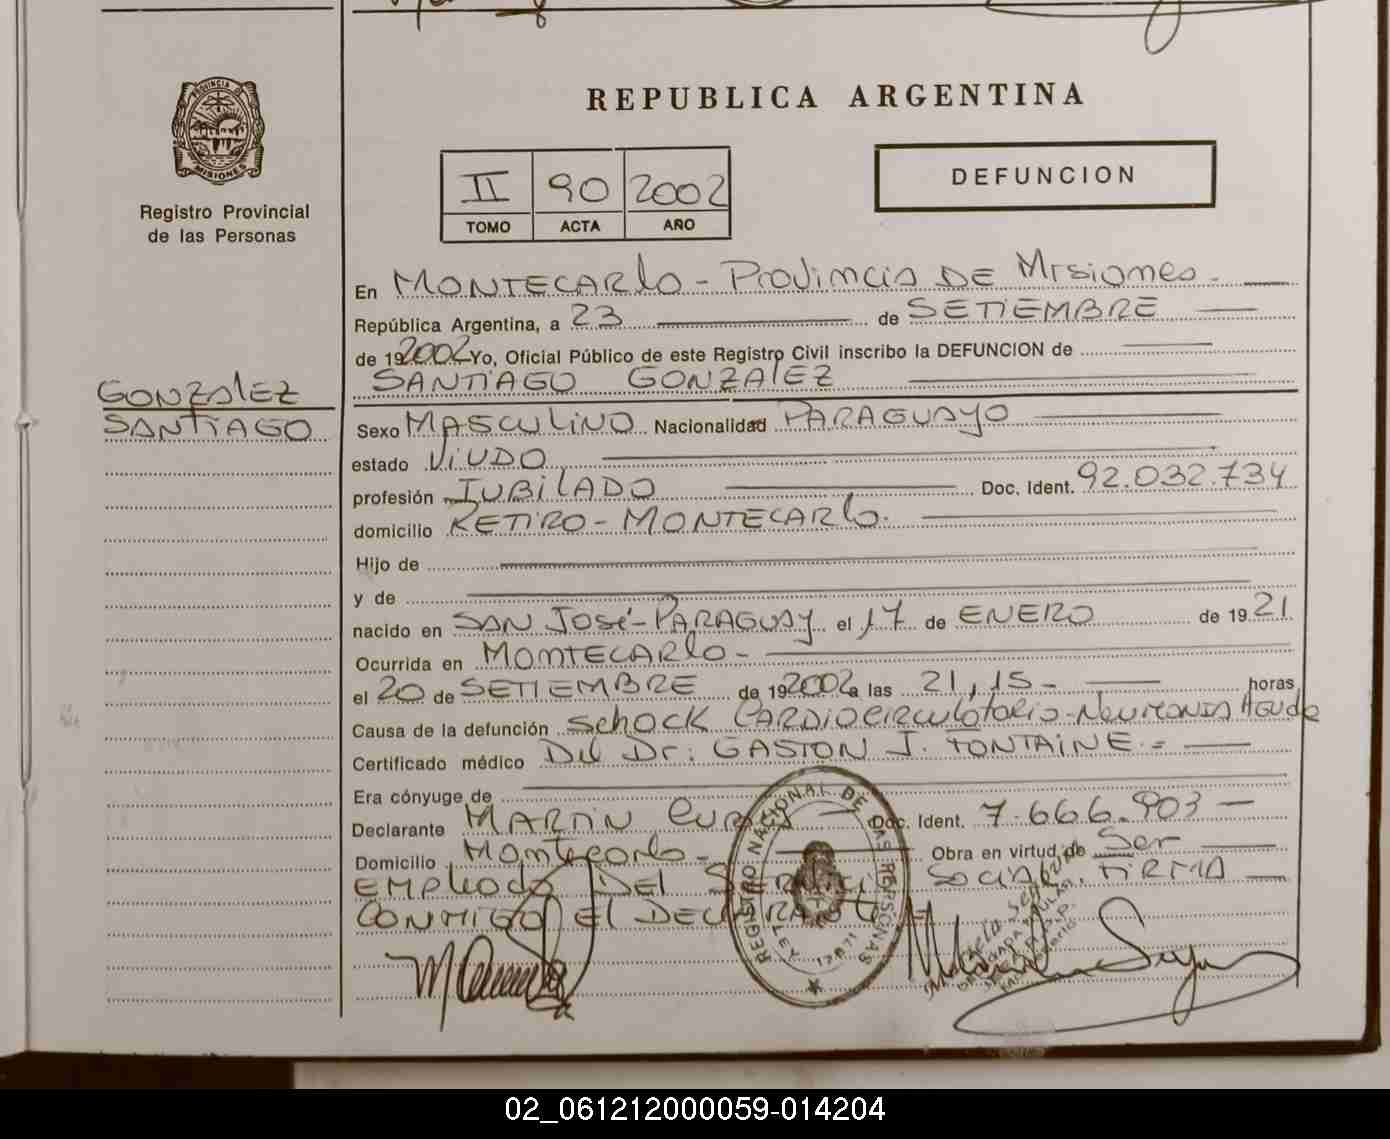 PROVINCIA DE
MISIONES
Registro Provincial
de las Personas
REPUBLICA ARGENTINA
II 90 2002
TOMO ACTA AÑO
DEFUNCION
En MONTECARLO - PROVINCIA DE MISIONES -
República Argentina, a 23 de SETIEMBRE
de 192002 Yo, Oficial Público de este Registro Civil inscribo la DEFUNCION de
SANTIAGO GONZALEZ
GONZALEZ
SANTIAGO
Sexo MASCULINO Nacionalidad PARAGUAYO
estado VIUDO
profesión JUBILADO Doc. Ident. 92.032.734
domicilio RETIRO - MONTECARLO.
Hijo de
y de
nacido en SAN JOSé - PARAGUAY el 17 de ENERO de 1921
Ocurrida en MONTECARLO -
el 20 de SETIEMBRE de 192002 a las 21,15 - horas
Causa de la defunción SCHOCK CARDIOCIRCULATORIO - NEUMONIA AGUDA
Certificado médico Del Dr: GASTON J. FONTAINE. =
Era cónyuge de
Declarante MARTIN Doc. Ident. 7.666.903 -
Domicilio Montecarlo - Obra en virtud de Ser
EMPLEADO DEL SOCIAL, FIRMA
CONMIGO EL DECLARANTE
REGISTRO NACIONAL DE LAS PERSONAS
LEY 17671
02_061212000059-014204